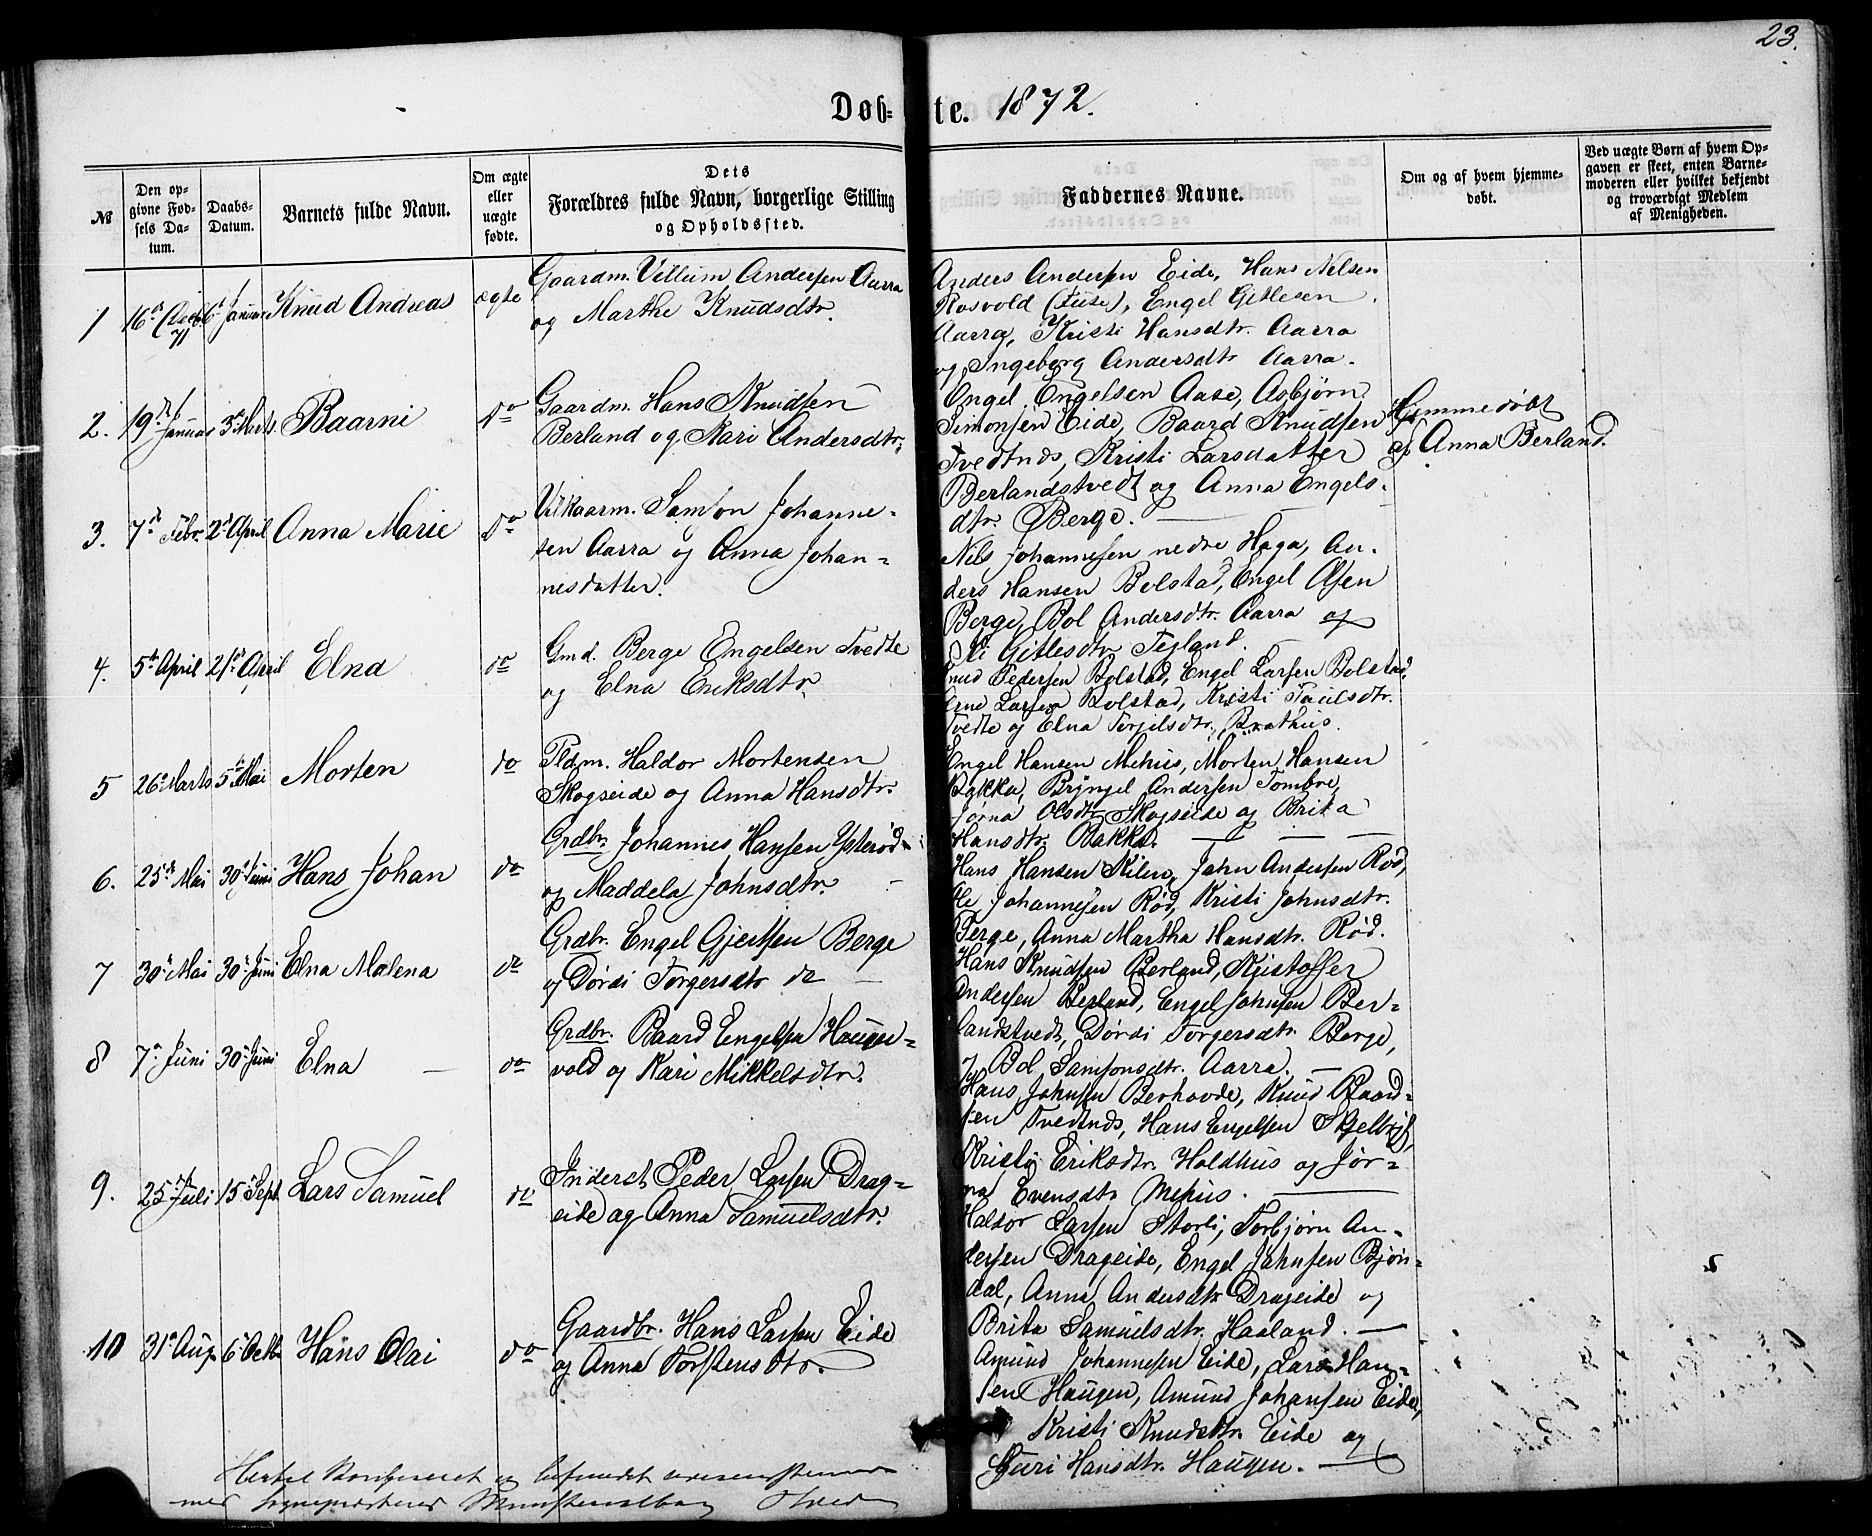 23.
Døb-te. 1872.
№
Den opgivne Fødsels Datum.
Daabs-Datum.
Barnets fulde Navn.
Om ægte eller uægte fødte.
Dets Forældres fulde Navn, borgerlige Stilling og Opholdssted.
Faddernes Navne.
Om og af hvem hjemmedøbt.
Ved uægte Børn af hvem Opgaven er skeet, enten Barnemoderen eller hvilket bekjendt og troværdigt Medlem af Menigheden.
1 16de 71 6te Januar Knud Andreas ægte
Gaardm. Villum Andersen Aarra
og Marthe Knudsdtr.
Anders Andersen Eide, Hans Nelsen
Rosvold (Fuse), Engel Gitlesen
Aarra, Kristi Hansdtr. Aarra
og Ingeborg Andersdtr Aarra.
2. 19de Januar 3de Marts Baarni Do
Gaardm. Hans Knudsen
Berland og Kari Andersdtr.
Engel Engelsen Aase, Asbjørn
Simonsen Eide, Baard Knudsen
Tvedtnæs, Kristi Larsdatter
Berlandstvedt og Anna Engels-
dtr. Berge.
Hjemmedøbt
af Anna Berland.
3. 7de Febr. 2de April Anna Marie Do
Vilkaarm. Samson Johanne-
sen Aarra og Anna Johan-
nesdatter.
Nils Johannesen nedre Haga, An-
ders Hansen Bolstad, Engel Olsen
Berge, Bol Andersdtr. Aarra og
Gitlesdtr Tegland.
4. 5te April 21de April Elna do
Gmd. Berge Engelsen Tvedte
og Elna Eriksdtr.
Knud Pedersen Bolstad, Engel Larsen Bolstad,
Arne Larsen Bolstad, Kristi Paulsdtr.
Tvedte og Elna Torgilsdtr. Brathus.
5 26de Marts 5te Mai Morten do
Pldm. Haldor Mortensen
Skogseide og Anna Hansdtr.
Engel Hansen Mehus, Morten Hansen
Bakka, Brynjel Andersen Tombre,
Jørna Olsdtr Skogseide og Brita
Hansdtr. Bakka.
6. 25de Mai 30de Juni Hans Johan do
Grdbr. Johannes Hansen Ysterød
og Maddela Johnsdtr.
Hans Hansen Kilen, John Andersen Rød,
Ole Johannesen Rød, Kristi Johnsdtr.
Berge, Anna Martha Hansdtr. Rød.
7 30te Mai 30te Juni Elna Malena do
Grdbr. Engel Gjertsen Berge
og Dordi Torgersdtr do
Hans Knudsen Berland, Kristoffer
Andersen Berland, Engel Johnsen Ber-
landstvedt, Dordi Torgersdtr Berge,
og Bol Samsonsdtr. Aarra.
8 7de Juni 30te Juni Elna do
Grdbr. Baard Engelsen Hauge-
vold og Kari Mikkelsdtr.
Hans Johnsen Berhovde, Knud Baard-
sen Tvedtnæs, Hans Engelsen Skjelbrei,
Kristi Eriksdtr. Holdhus og Jør-
na Evensdtr Mehus.
9. 25de Juli 15de Sept. Lars Samuel do
Inderst Peder Larsen Drag-
eide og Anna Samuelsdtr.
Haldor Larsen Storli, Torbjørn An-
dersen Drageide, Engel Johnsen Bjørn-
dal, Anna Andersdtr Drageide og
Brita Samuelsdtr. Haaland.
10 31te Aug. 6te Octb. Hans Olai do
Gaardbr. Hans Larsen Eide
og Anna Torstensdtr.
Amund Johannesen Eide, Lars Han-
sen Haugen, Amund Johansen Eide,
Kristi Knudsdtr. Eide og
Guri Hansdtr. Haugen.
og befundet overensstemmende
med